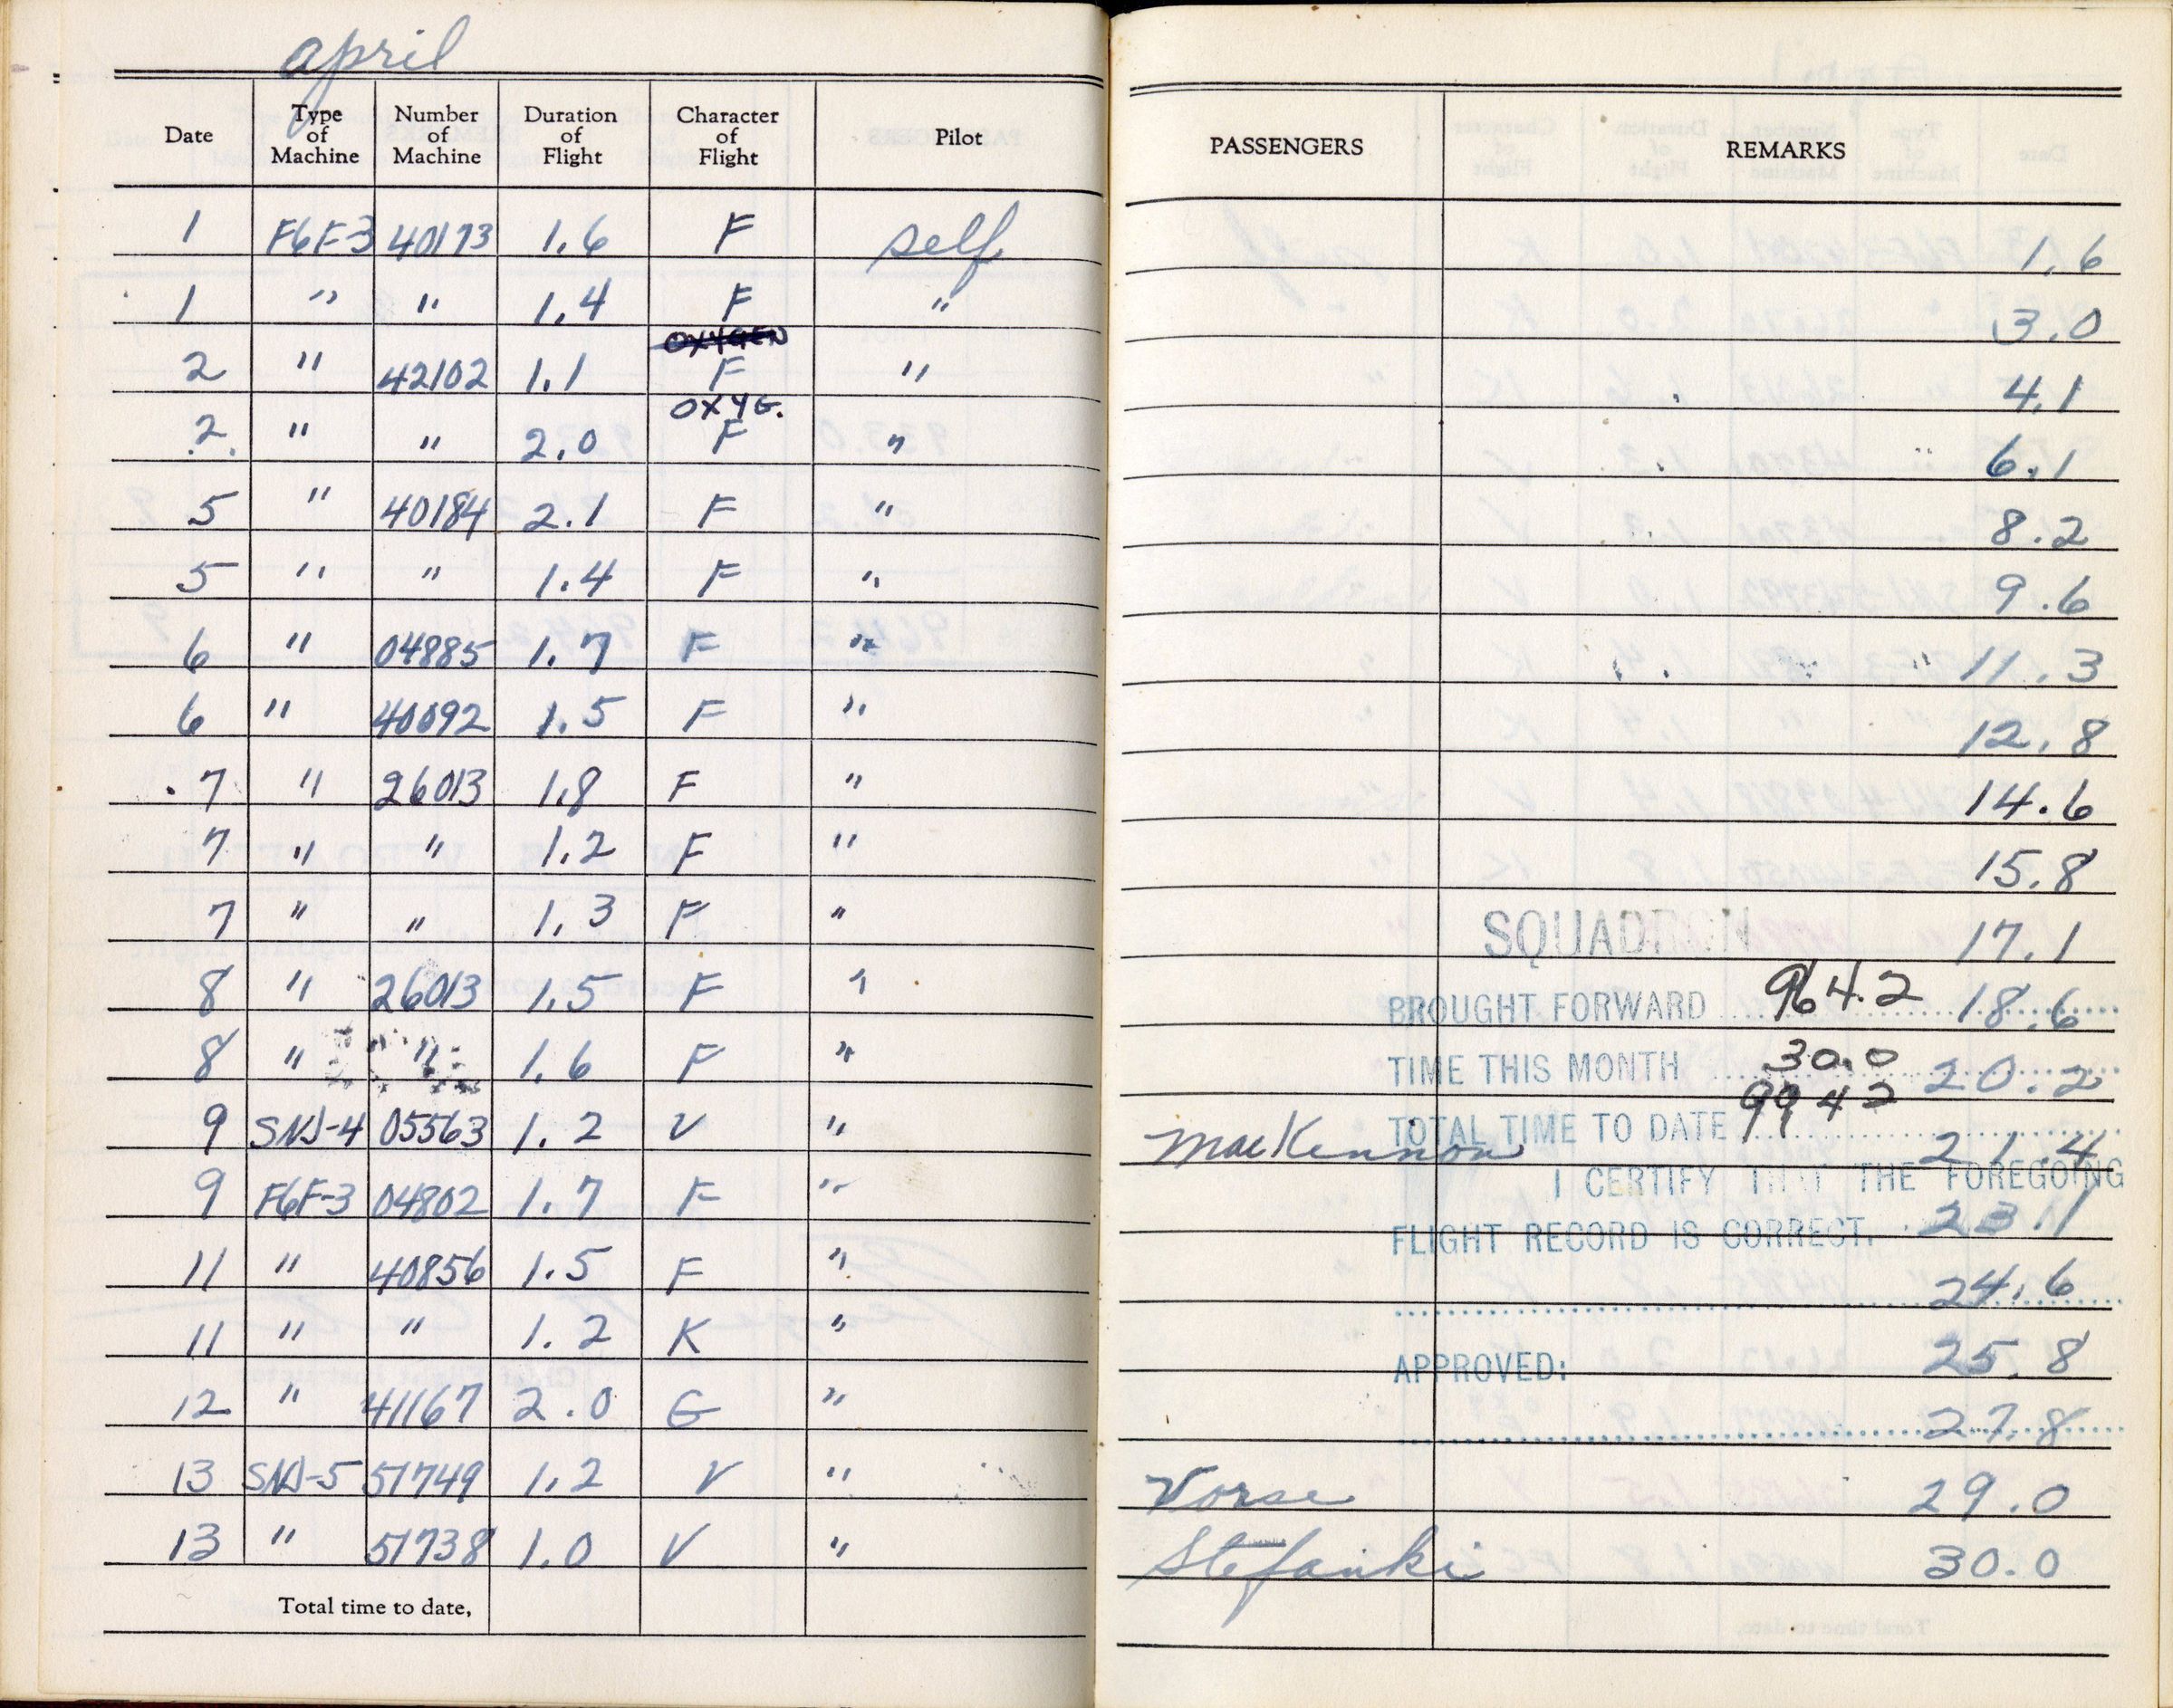 april
Date Type of Machine Number of Machine Duration of Flight Character of Flight Pilot PASSENGERS REMARKS
1 F6F-3 40173 1.6 F self 1.6
1 " " 1.4 F " 3.0
OXYGEN
2 " 42102 1.1 F " 4.1
OXYG.
2. " " 2.0 F " 6.1
5 " 40184 2.1 F " 8.2
5 " " 1.4 F " 9.6
6 " 04885 1.7 F " 11.3
6 " 40092 1.5 F " 12.8
7 " 26013 1.8 F " 14.6
7 " " 1.2 F " 15.8
7 " " 1.3 F " 17.1
SQUADRON
8 " 26013 1.5 F " 18.6
BROUGHT FORWARD 964.2
8 " " 1.6 F " 20.2
TIME THIS MONTH 30.0
9 SNJ-4 05563 1.2 V " MacKennon 21.4
TOTAL TIME TO DATE 994 2
9 F6F-3 04802 1.7 F " 23.1
I CERTIFY THAT THE FOREGOING
FLIGHT RECORD IS CORRECT.
11 " 40856 1.5 F " 24.6
11 " " 1.2 K " 25.8
APPROVED:
12 " 41167 2.0 G " 27.8
13 SNJ-5 51749 1.2 V " Vorse 29.0
13 " 51738 1.0 V " Stefanki 30.0
Total time to date,